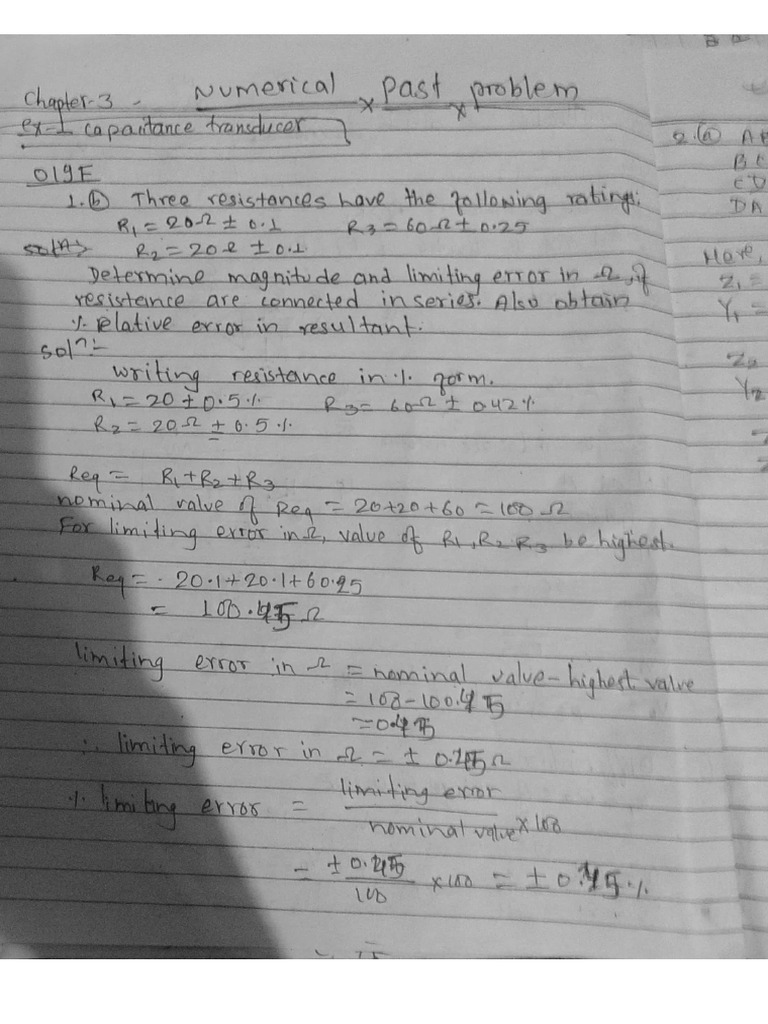 Chapter-3 - Numerical × Past × problem
ex-1 capaitance transducer
019F
1.(b) Three resistances have the following rating:
R₁ = 20Ω ± 0.1 R₃ = 60Ω ± 0.25
R₂ = 20Ω ± 0.1
Determine magnitude and limiting error in Ω, if
resistance are connected in series. Also obtain
% relative error in resultant.
solⁿ:-
writing resistance in % form.
R₁ = 20 ± 0.5% R₃ = 60Ω ± 0.42%
R₂ = 20Ω ± 0.5%
Req = R₁+R₂+R₃
nominal value of Req = 20+20+60 = 100 Ω
For limiting error in Ω, value of R₁, R₂ R₃ be highest.
Req = 20.1+20.1+60.25
= 100.45Ω
limiting error in Ω = nominal value - highest value
= 100 - 100.45
= 0.45
∴ limiting error in Ω = ± 0.45Ω
% limiting error = limiting error / nominal value × 100
= ± 0.45 / 100 × 100 = ± 0.45%
2.(a) AB
BC
CD
DA
Here,
Z₁ =
Y₁ =
Z₂
Y₂